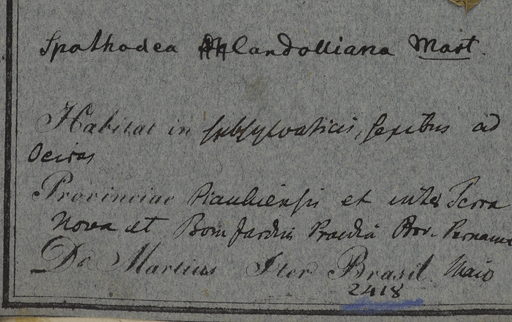 Spathodea Candolliana Mart.
Habitat in subsylvaticis, sepibus ad
Oeiras
Provinciae Piauhiensis et inter Terra
Nova et Bom Jardin Praedia Prov. Pernamb
De Martius Iter Brasil. Maio
2418